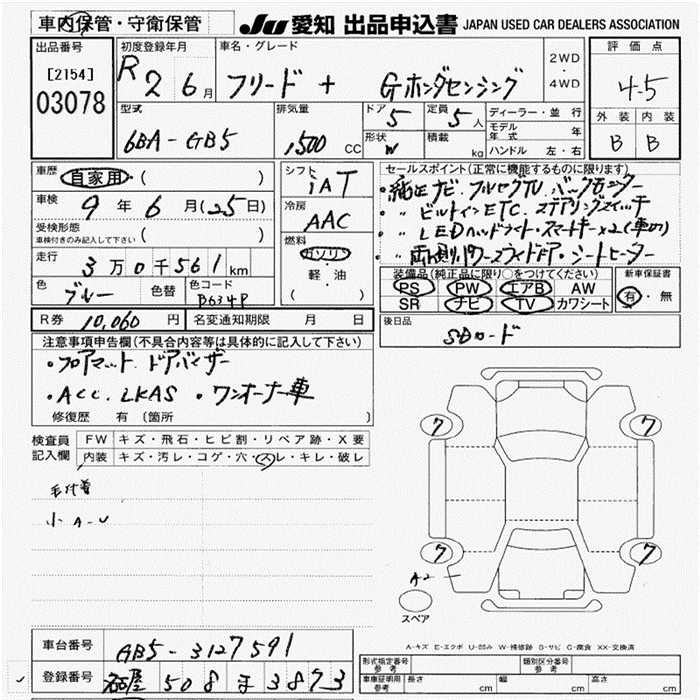 車内保管・守衛保管
JU 愛知 出品申込書 JAPAN USED CAR DEALERS ASSOCIATION
出品番号
[2154]
03078
初度登録年月
R 2 6月
車名・グレード
フリード + Gホンダセンシング
2WD
・
4WD
評価点
4.5
外装 内装
B B
型式
6BA-GB5
排気量
1500 CC
ドア
5
定員
5人
形状
W
積載
kg
ディーラー・並行
モデル年式 年
ハンドル 左・右
車歴
自家用・( )
車検
9年6月(25日)
受検形態
車検付きのみ記入して下さい ( )
走行
3万0千561km
色
ブルー
色替
色コード
B634P
シフト
iAT
冷房
AAC
燃料
ガソリン
軽・油
( )
セールスポイント(正常に機能するものに限ります)
・純正ナビ・フルセグTV・バックカメラー
・〃 ビルトインETC・ステアリングスイッチ
・〃 LEDヘッドライト・スマートキー×2(車の)
・〃 両側パワースライドドア・シートヒーター
装備品(純正品に限り○をつけてください)
PS PW エアB AW
SR ナビ TV カワシート
新車保証書
有・無
R券 10,060円
名変通知期限 月 日
後日品
SDカード
注意事項申告欄(不具合内容等は具体的に記入して下さい)
・フロアマット.ドアバイザー
・ACC.LKAS ・ワンオーナー車
修復歴 有 (箇所 )
検査員記入欄
FW キズ・飛石・ヒビ割・リペア跡・X要
内装 キズ・汚レ・コゲ・穴・スレ・キレ・破レ
毛付着
小A-U
ワ ワ
ワ ワ
A2
スペア
A-キズ E-エクボ U-凹み W-補修跡 S-サビ C-腐食 XX-交換済
車台番号 GB5-3127591
登録番号 名古屋 508 ま 3873
形式指定番号 参考
類別区分番号 参考
車庫証明用参考 長さ cm 幅 cm 高さ cm